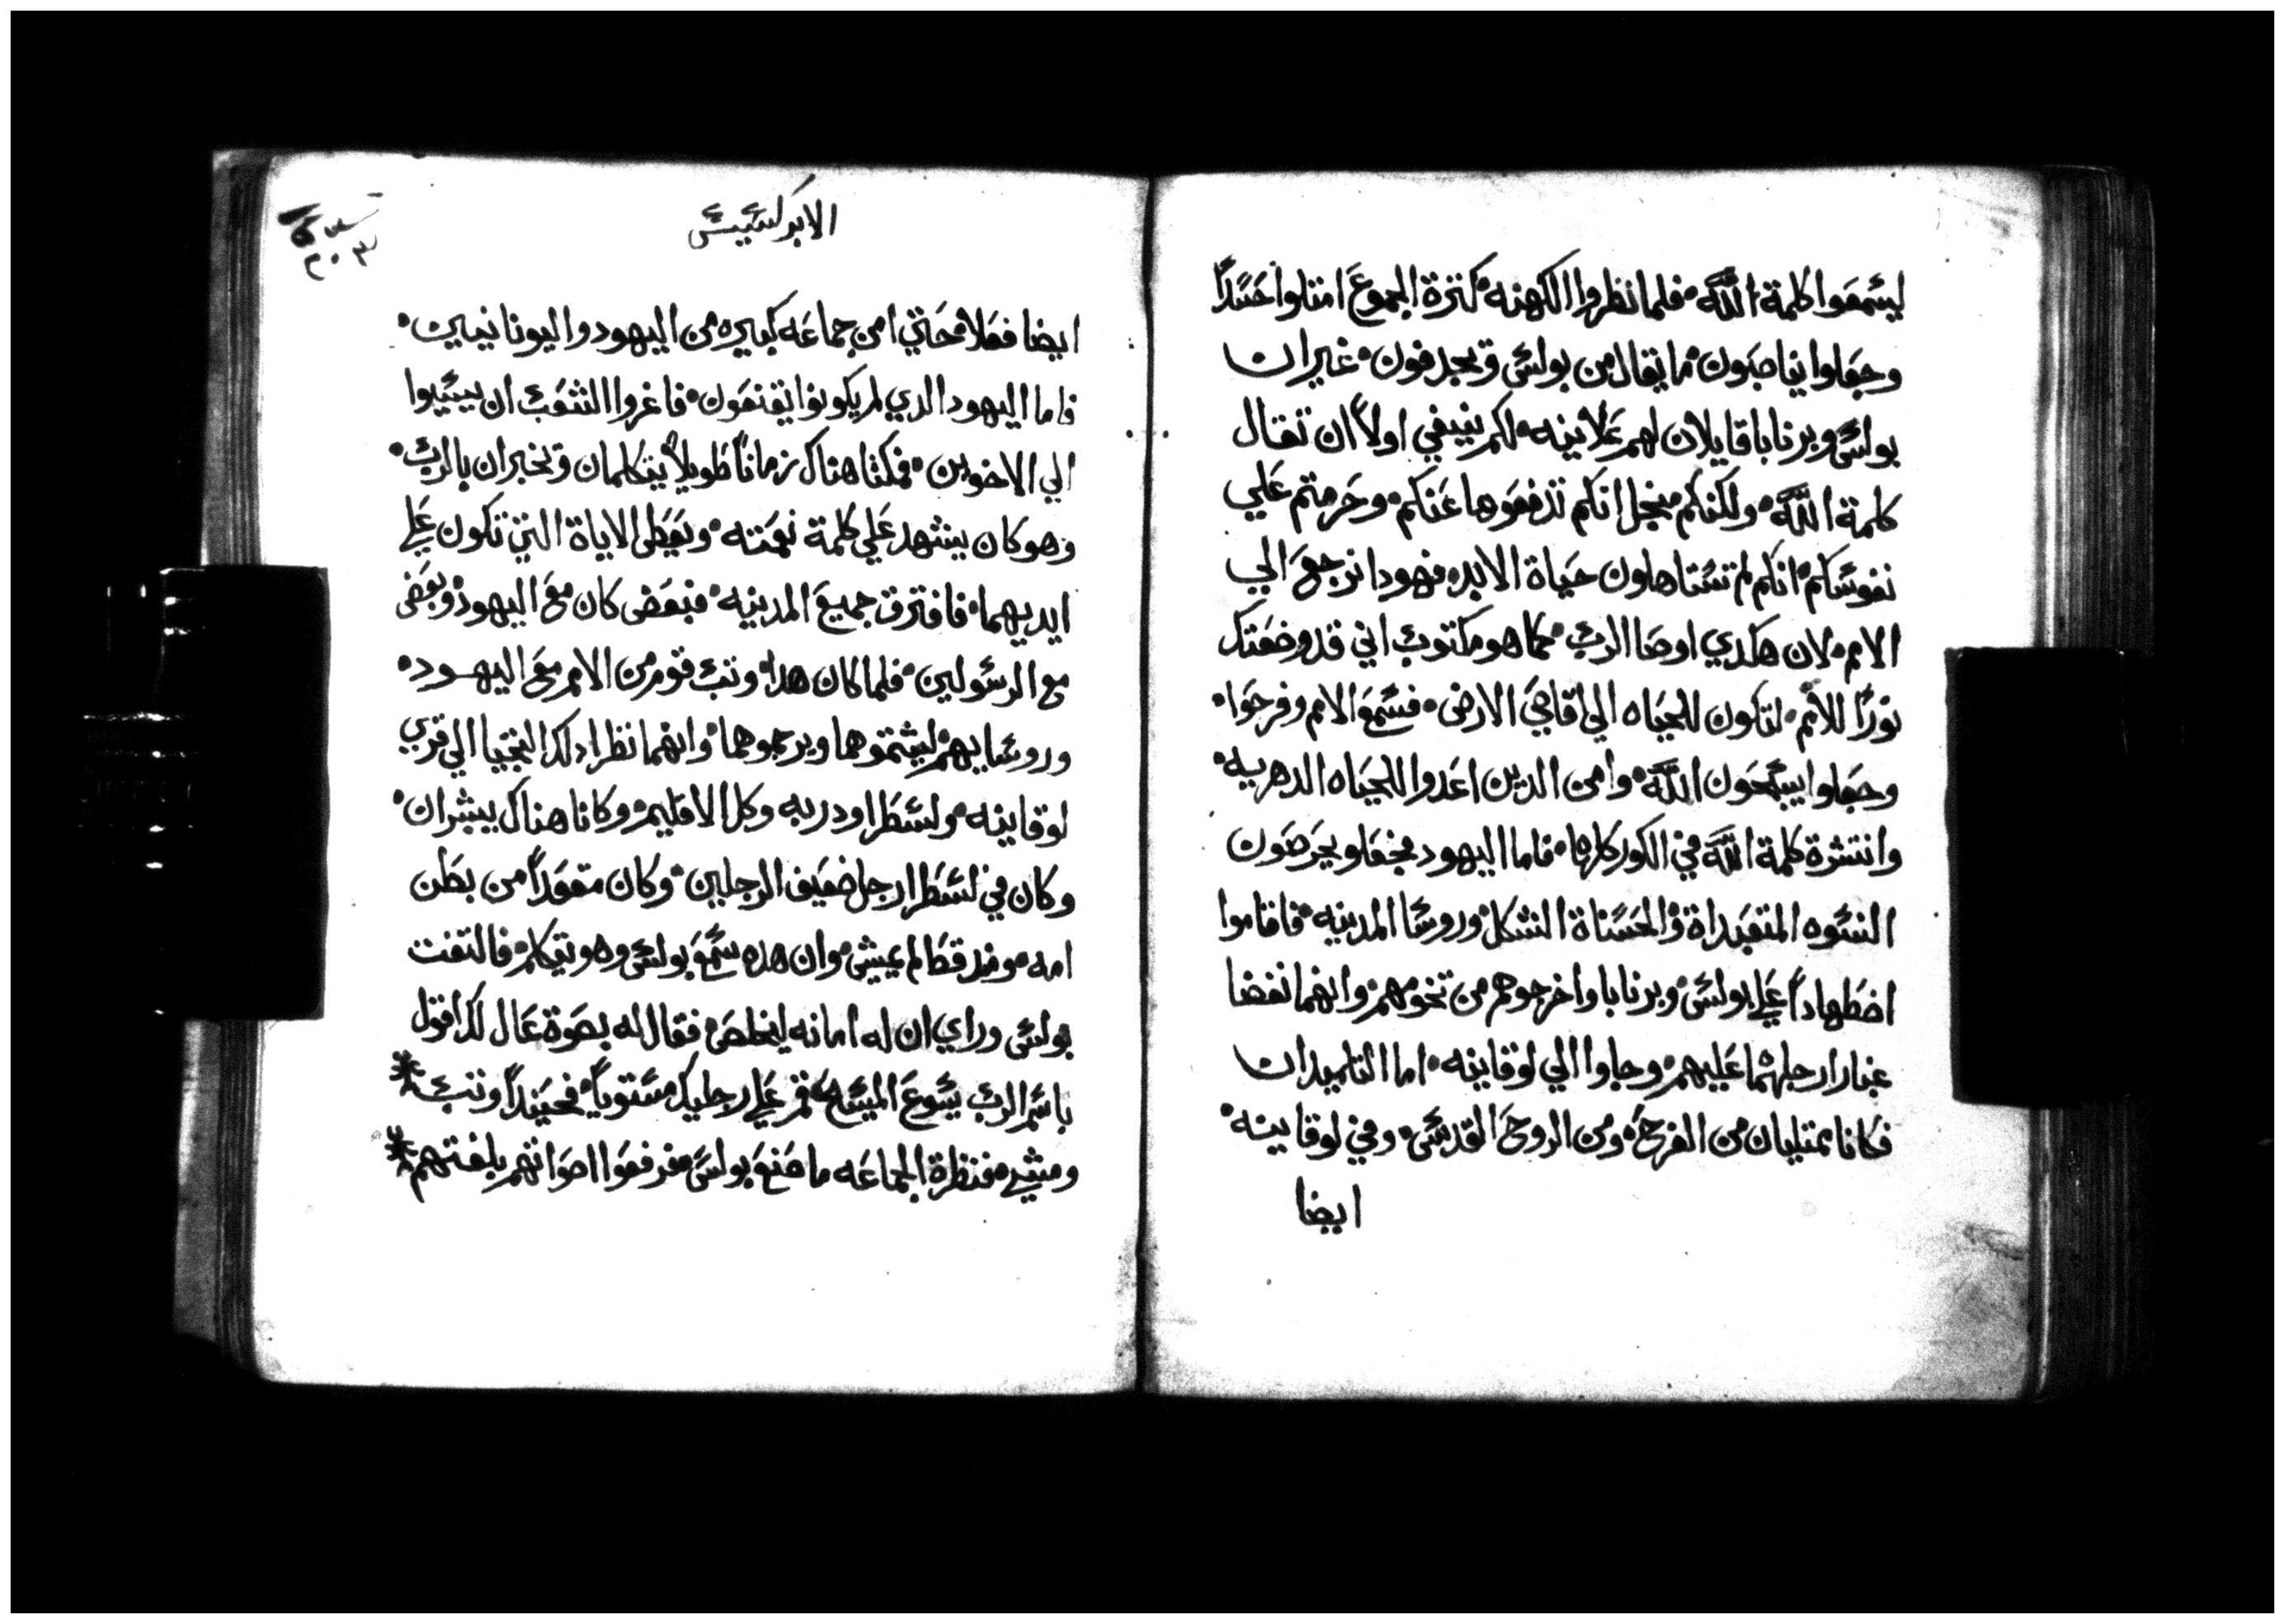 ليسمعوا كلمة الله۰ فلما نظروا الكهنه۰ كترة الجموع امتلوا حسدًا
وجعلوا يناصبون۰ ما يقال من بولس ويجدفون۰ غير ان
بولس وبرنابا قايلان لهم علانيه۰ لكم ينبغي اولاً ان تقال
كلمة الله۰ ولكنكم منجل انكم تدفعوها عنكم۰ وحرمتم علي
نفوسكم۰ انكم لم تستاهلون حياة الابد۰ فهودا نرجع الي
الامم۰ لان هكدي اوصا الرب۰ كما هو مكتوب اني قد وضعتك
نورًا للامم۰ لتكون للحياه الي اقاصي الارض۰ فسمع الامم وفرحوا۰
وجعلوا يسبحون الله۰ وامن الدين اعدوا للحياه الدهريه۰
وانتشرة كلمة الله في الكور كلها۰ فاما اليهود فجعلو يحرصون
النسوه المتعبداة والحسناة الشكل۰ وروسا المدينه۰ فاقاموا
اضطهادًا علي بولس۰ وبرنابا واخرجوهم من تخومهم۰ وانهما نفضا
غبار ارجلهما عليهم۰ وجاوا الي لوقانيه۰ اما التلميدان
فكانا يمتليان من الفرح۰ ومن الروح القدس۰ وفي لوقانيه۰
ايضا
الابركسيس
٢٠٣
ايضا فعلا۰ حتي امن جماعه كبيره من اليهود واليونانيين۰
فاما اليهود الدي لم يكونوا يقنعون۰ فاغروا الشعب ان يسيوا
الي الاخوين۰ فمكثا هناك زمانًا طويلاً يتكلمان ويخبران بالرب۰
وهو كان يشهد علي كلمة نعمته۰ ويعطي الاياة التي تكون علي
ايديهما۰ فافترق جميع المدينه۰ فبعض كان مع اليهود۰ وبعض
مع الرسولين۰ فلما كان هدا۰ وتب قوم من الامم مع اليهود۰
وروسايهم۰ ليشتموها ويرجموها۰ وانهما نظرا دلك التجيا الي قري
لوقانيه۰ ولسطرا ودربه وكل الاقليم۰ وكانا هناك يبشران۰
وكان في لسطرا رجل ضعيف الرجلين۰ وكان مقعدًا من بطن
امه۰ ومند قط لم يمشي۰ وان هده سمع بولس وهو يتكلم۰ فالتفت
بولس وراي ان له امانه ليخلص۰ فقال له بصوة عال لك اقول
باسم الرب يسوع المسيح۰ قم علي رجليك مستويًا۰ فحينيدًا وتب
ومشي۰ فنظرة الجماعه ما صنع بولس۰ فرفعوا اصواتهم بلغتهم